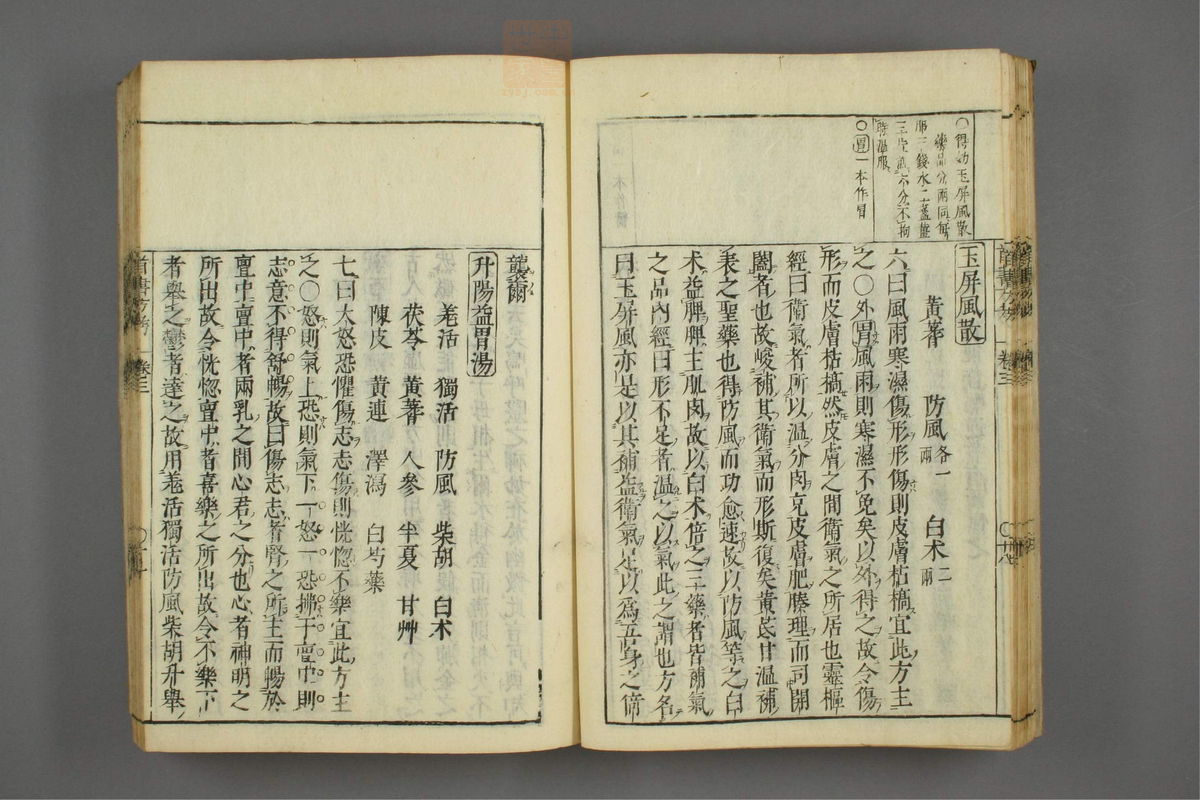 〇得効玉屏風散
藥品分兩同每
服三錢水二盞薑
三片煎六分不拘
時溫服
〇胃一本作冒
玉屏風散
黃蓍 防風各一兩 白术二兩
六曰風雨寒濕傷形形傷則皮膚枯槁宜此方主
之〇外胃風雨則寒濕不免矣以外得之故令傷
形而皮膚枯槁然皮膚之間衛氣之所居也靈樞
經曰衛氣者所以溫分肉充皮膚肥腠理而司開
闔者也故峻補其衛氣而形斯復矣黃芪甘溫補
表之聖藥也得防風而功愈速故以防風等之白
术益脾脾主肌肉故以白术倍之三藥者皆補氣
之品內經曰形不足者溫之以氣此之謂也方名
曰玉屏風亦是以其補益衛氣足以爲吾身之倚
襲爾
升陽益胃湯
羌活 獨活 防風 柴胡 白术
茯苓 黃蓍 人參 半夏 甘艸
陳皮 黃連 澤瀉 白芍藥
七曰大怒恐懼傷志志傷則恍惚不樂宜此方主
之〇怒則氣上恐則氣下一怒一恐拂于亶中則
志意不得舒暢故曰傷志志者腎之所主而暢於
亶中亶中者兩乳之間心君之分也心者神明之
所出故令恍惚亶中者喜樂之所出故令不樂下
者舉之鬱者達之故用羌活獨活防風柴胡升舉
卷三
卷三